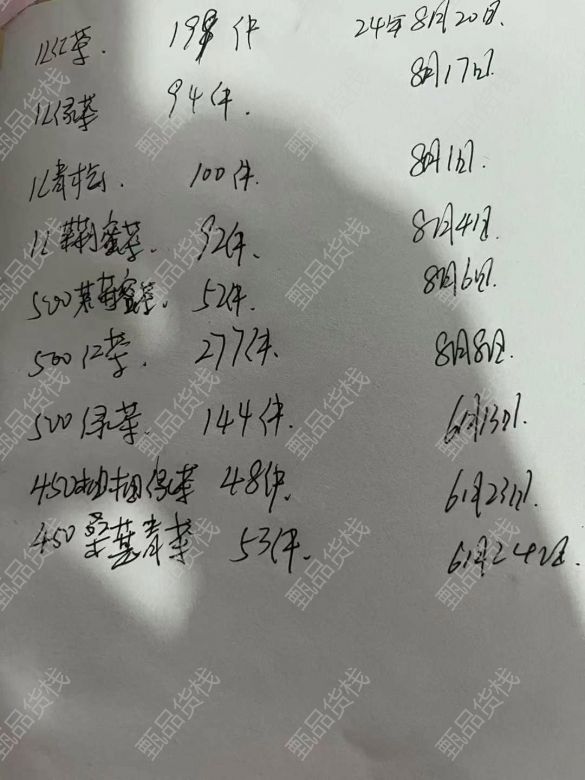 1L红茶 198件 24年8月20日
1L绿茶 94件. 8月17日.
1L青梅. 100件. 8月1日.
1L茉莉蜜茶. 92件. 8月4日
500茉莉蜜茶. 52件. 8月6日.
500红茶. 277件. 8月8日.
500绿茶. 144件. 6月13日.
450柚柚绿茶 48件. 6月23日.
450 青茶 53件. 6月24日.
甄品货栈